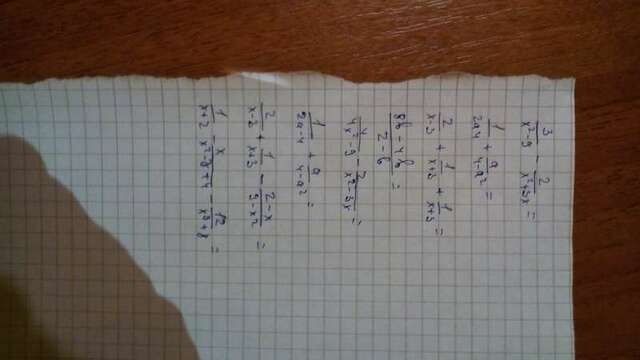 3/(x²-9) - 2/(x²+3x) =
1/(2a4) + a/(4-a²) =
2/(x-3) + 1/(x+3) + 1/(x+3) =
(8b-4b)/(2-b) =
4/(4x²-9) - 2/(x²-3x) =
1/(2a4) + a/(4-a²) =
2/(x-3) + 1/(x+3) - (2-x)/(9-x²) =
1/(x+2) - x/(x²-2+4) - 12/(x³+8) =